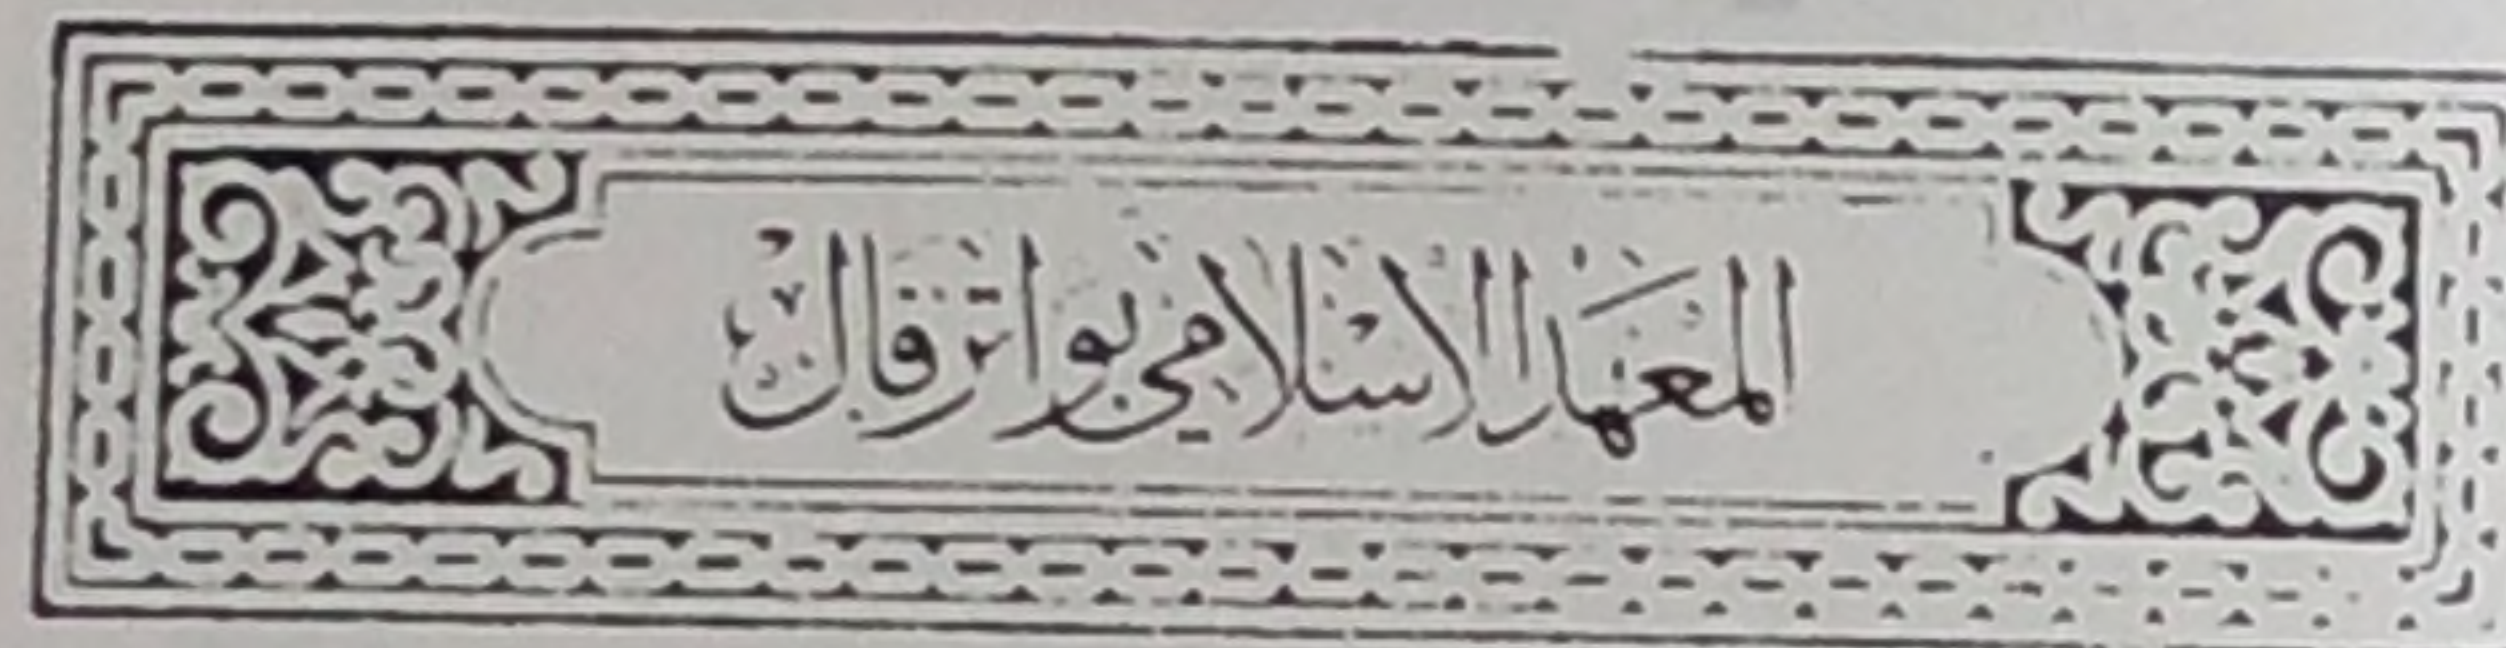 المعهد الاسلامي بواترقاك